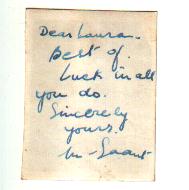 Dear Laura.
Best of.
Luck in all
you do.
Sincerely
yours.